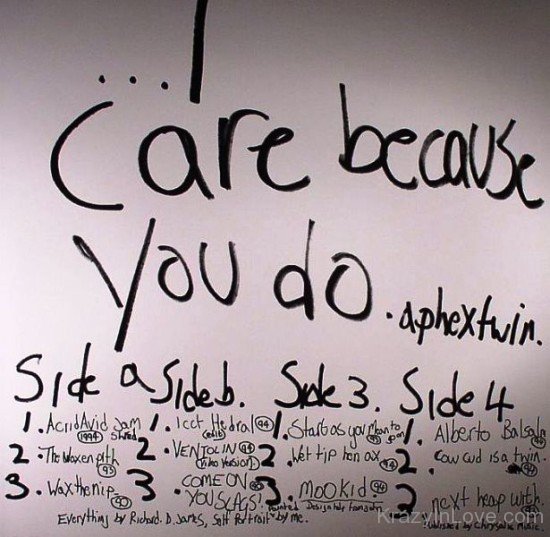 ...I
Care because
you do.
aphextwin.
Side a
1. Acrid Avid Jam
Shred
1994
2. The Waxen pith
93
3. Wax the nip.
90
Side b.
1. icct Hedral
(edit)
94
2. VENTOLIN
(video version)
94
3. COME ON
YOU SLAGS!
Side 3.
1. Start as you mean to
go on
93
2. Wet tip hen ax
94
3. Mookid.
94
Side 4
1. Alberto Balsalm
2. Cow cud is a twin.
94
3. next heap with.
Everything by Richard. D. James, Self Portrait by me.
Printed Design help from
Published by Chrysalis Music.
KrazyInLove.com